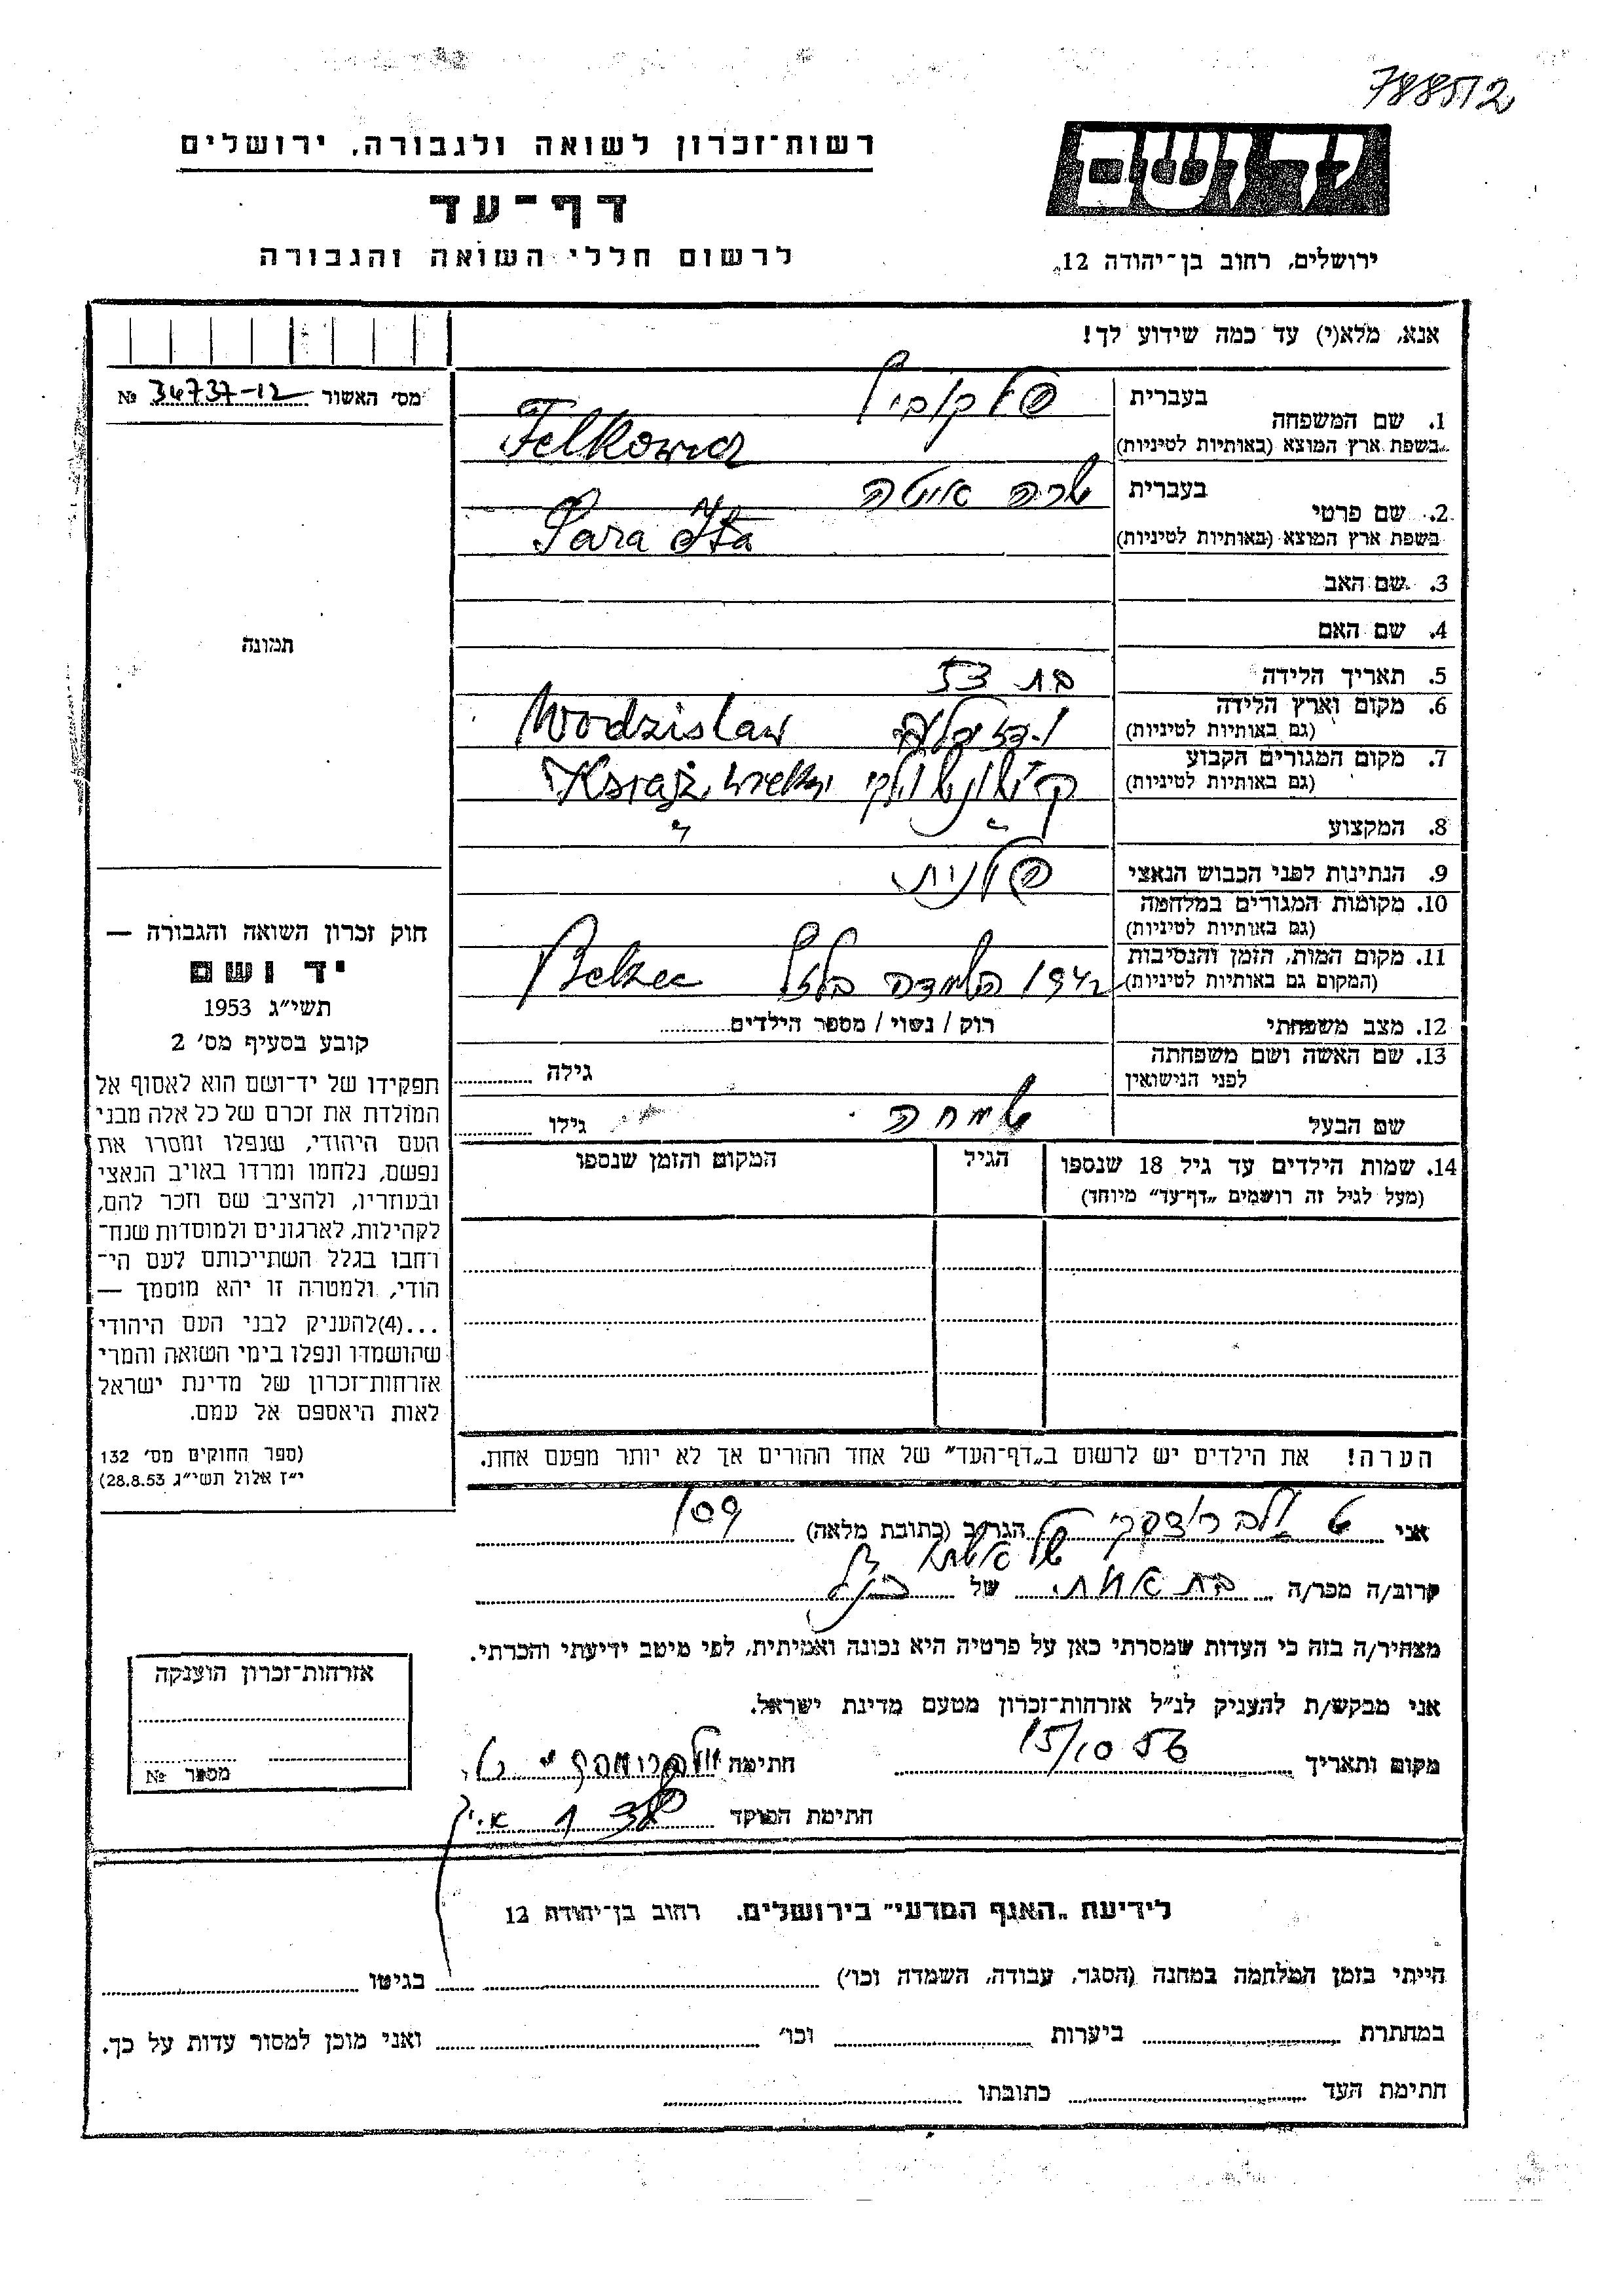 788512
רשות־זכרון לשואה ולגבורה, ירושלים
ידושם
דף־עד
לרשום חללי השואה והגבורה
ירושלים, רחוב בן־יהודה 12.
אנא, מלא(י) עד כמה שידוע לך!
מס' האשור 34737-12 №
תמונה
1. שם המשפחה
בעברית פלקוביץ
בשפת ארץ המוצא (באותיות לטיניות) Felkowicz
2. שם פרטי
בעברית שרה איטה
בשפת ארץ המוצא (באותיות לטיניות) Sara Ita
3. שם האב
4. שם האם
5. תאריך הלידה בת 53
6. מקום וארץ הלידה
(גם באותיות לטיניות) Wodzislaw
7. מקום המגורים הקבוע
(גם באותיות לטיניות)
8. המקצוע
9. הנתינות לפני הכבוש הנאצי פולנית
10. מקומות המגורים במלחמה
(גם באותיות לטיניות)
11. מקום המות, הזמן והנסיבות
(המקום גם באותיות לטיניות) 1942 השמדה בלזץ Belzec
12. מצב משפחתי רוק / נשוי / מספר הילדים
13. שם האשה ושם משפחתה
לפני הנישואין גילה
שם הבעל שמחה גילו
14. שמות הילדים עד גיל 18 שנספו הגיל המקום והזמן שנספו
(מעל לגיל זה רושמים „דף־עד" מיוחד)
הערה! את הילדים יש לרשום ב„דף־העד" של אחד ההורים אך לא יותר מפעם אחת.
חוק זכרון השואה והגבורה —
יד ושם
תשי"ג 1953
קובע בסעיף מס' 2
תפקידו של יד־ושם הוא לאסוף אל
המולדת את זכרם של כל אלה מבני
העם היהודי, שנפלו ומסרו את
נפשם, נלחמו ומרדו באויב הנאצי
ובעוזריו, ולהציב שם וזכר להם,
לקהילות, לארגונים ולמוסדות שנח־
רחבו בגלל השתייכותם לעם הי־
הודי, ולמטרה זו יהא מוסמך —
...(4)להעניק לבני העם היהודי
שהושמדו ונפלו בימי השואה והמרי
אזרחות־זכרון של מדינת ישראל
לאות היאספם אל עמם.
(ספר החוקים מס' 132
י"ז אלול תשי"ג 28.8.53)
אני הגר/ב (כתובת מלאה)
קרוב/ה מכר/ה בת אחת של
מצהיר/ה בזה כי העדות שמסרתי כאן על פרטיה היא נכונה ואמיתית, לפי מיטב ידיעתי והכרתי.
אני מבקש/ת להעניק לנ"ל אזרחות־זכרון מטעם מדינת ישראל.
מקום ותאריך 15/10 56 חתימה
חתימת הפוקד
אזרחות־זכרון הוענקה
מספר №
לידיעת „האגף המדעי" בירושלים. רחוב בן־יהודה 12
הייתי בזמן המלחמה במחנה (הסגר, עבודה, השמדה וכו') בגיטו
במחתרת ביערות וכו' ואני מוכן למסור עדות על כך.
חתימת העד כתובתו